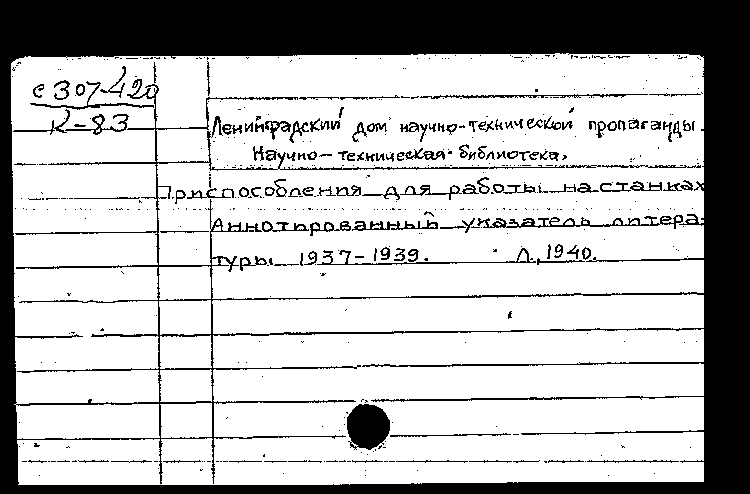 е 307-420
К-83
Ленинградский дом научно-технической пропаганды.
Научно-техническая библиотека.
Приспособления для работы на станках
Аннотированный указатель литера-
туры 1937-1939. Л., 1940.